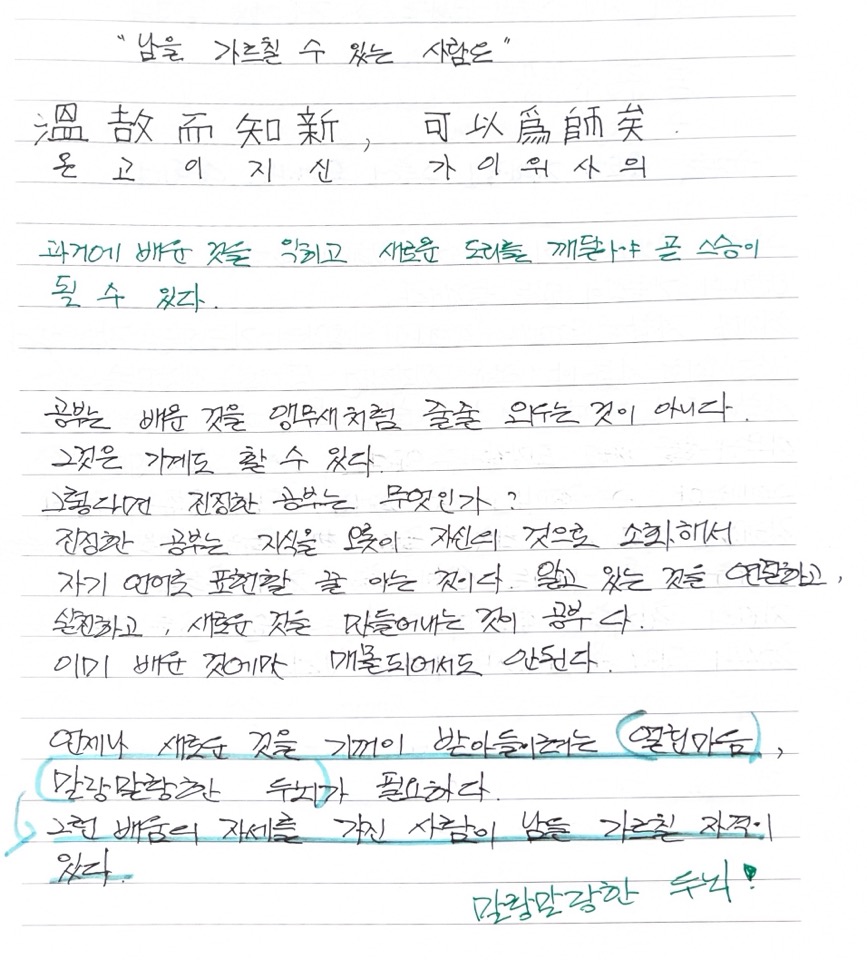 "남을 가르칠 수 있는 사람은"
溫故而知新, 可以爲師矣.
온 고 이 지 신 가 이 위 사 의
과거에 배운 것을 익히고 새로운 도리를 깨달아야 곧 스승이
될 수 있다.
공부는 배운 것을 앵무새처럼 줄줄 외우는 것이 아니다.
그것은 기계도 할 수 있다.
그렇다면 진정한 공부는 무엇인가?
진정한 공부는 지식을 오롯이 자신의 것으로 소화해서
자기 언어로 표현할 줄 아는 것이다. 알고 있는 것을 연달하고,
실천하고, 새로운 것을 만들어내는 것이 공부다.
이미 배운 것에만 매몰되어서도 안된다.
언제나 새로운 것을 기꺼이 받아들이려는 열린마음,
말랑말랑한 두뇌가 필요하다.
그런 배움의 자세를 가진 사람이 남을 가르칠 자격이
있다.
말랑말랑한 두뇌!